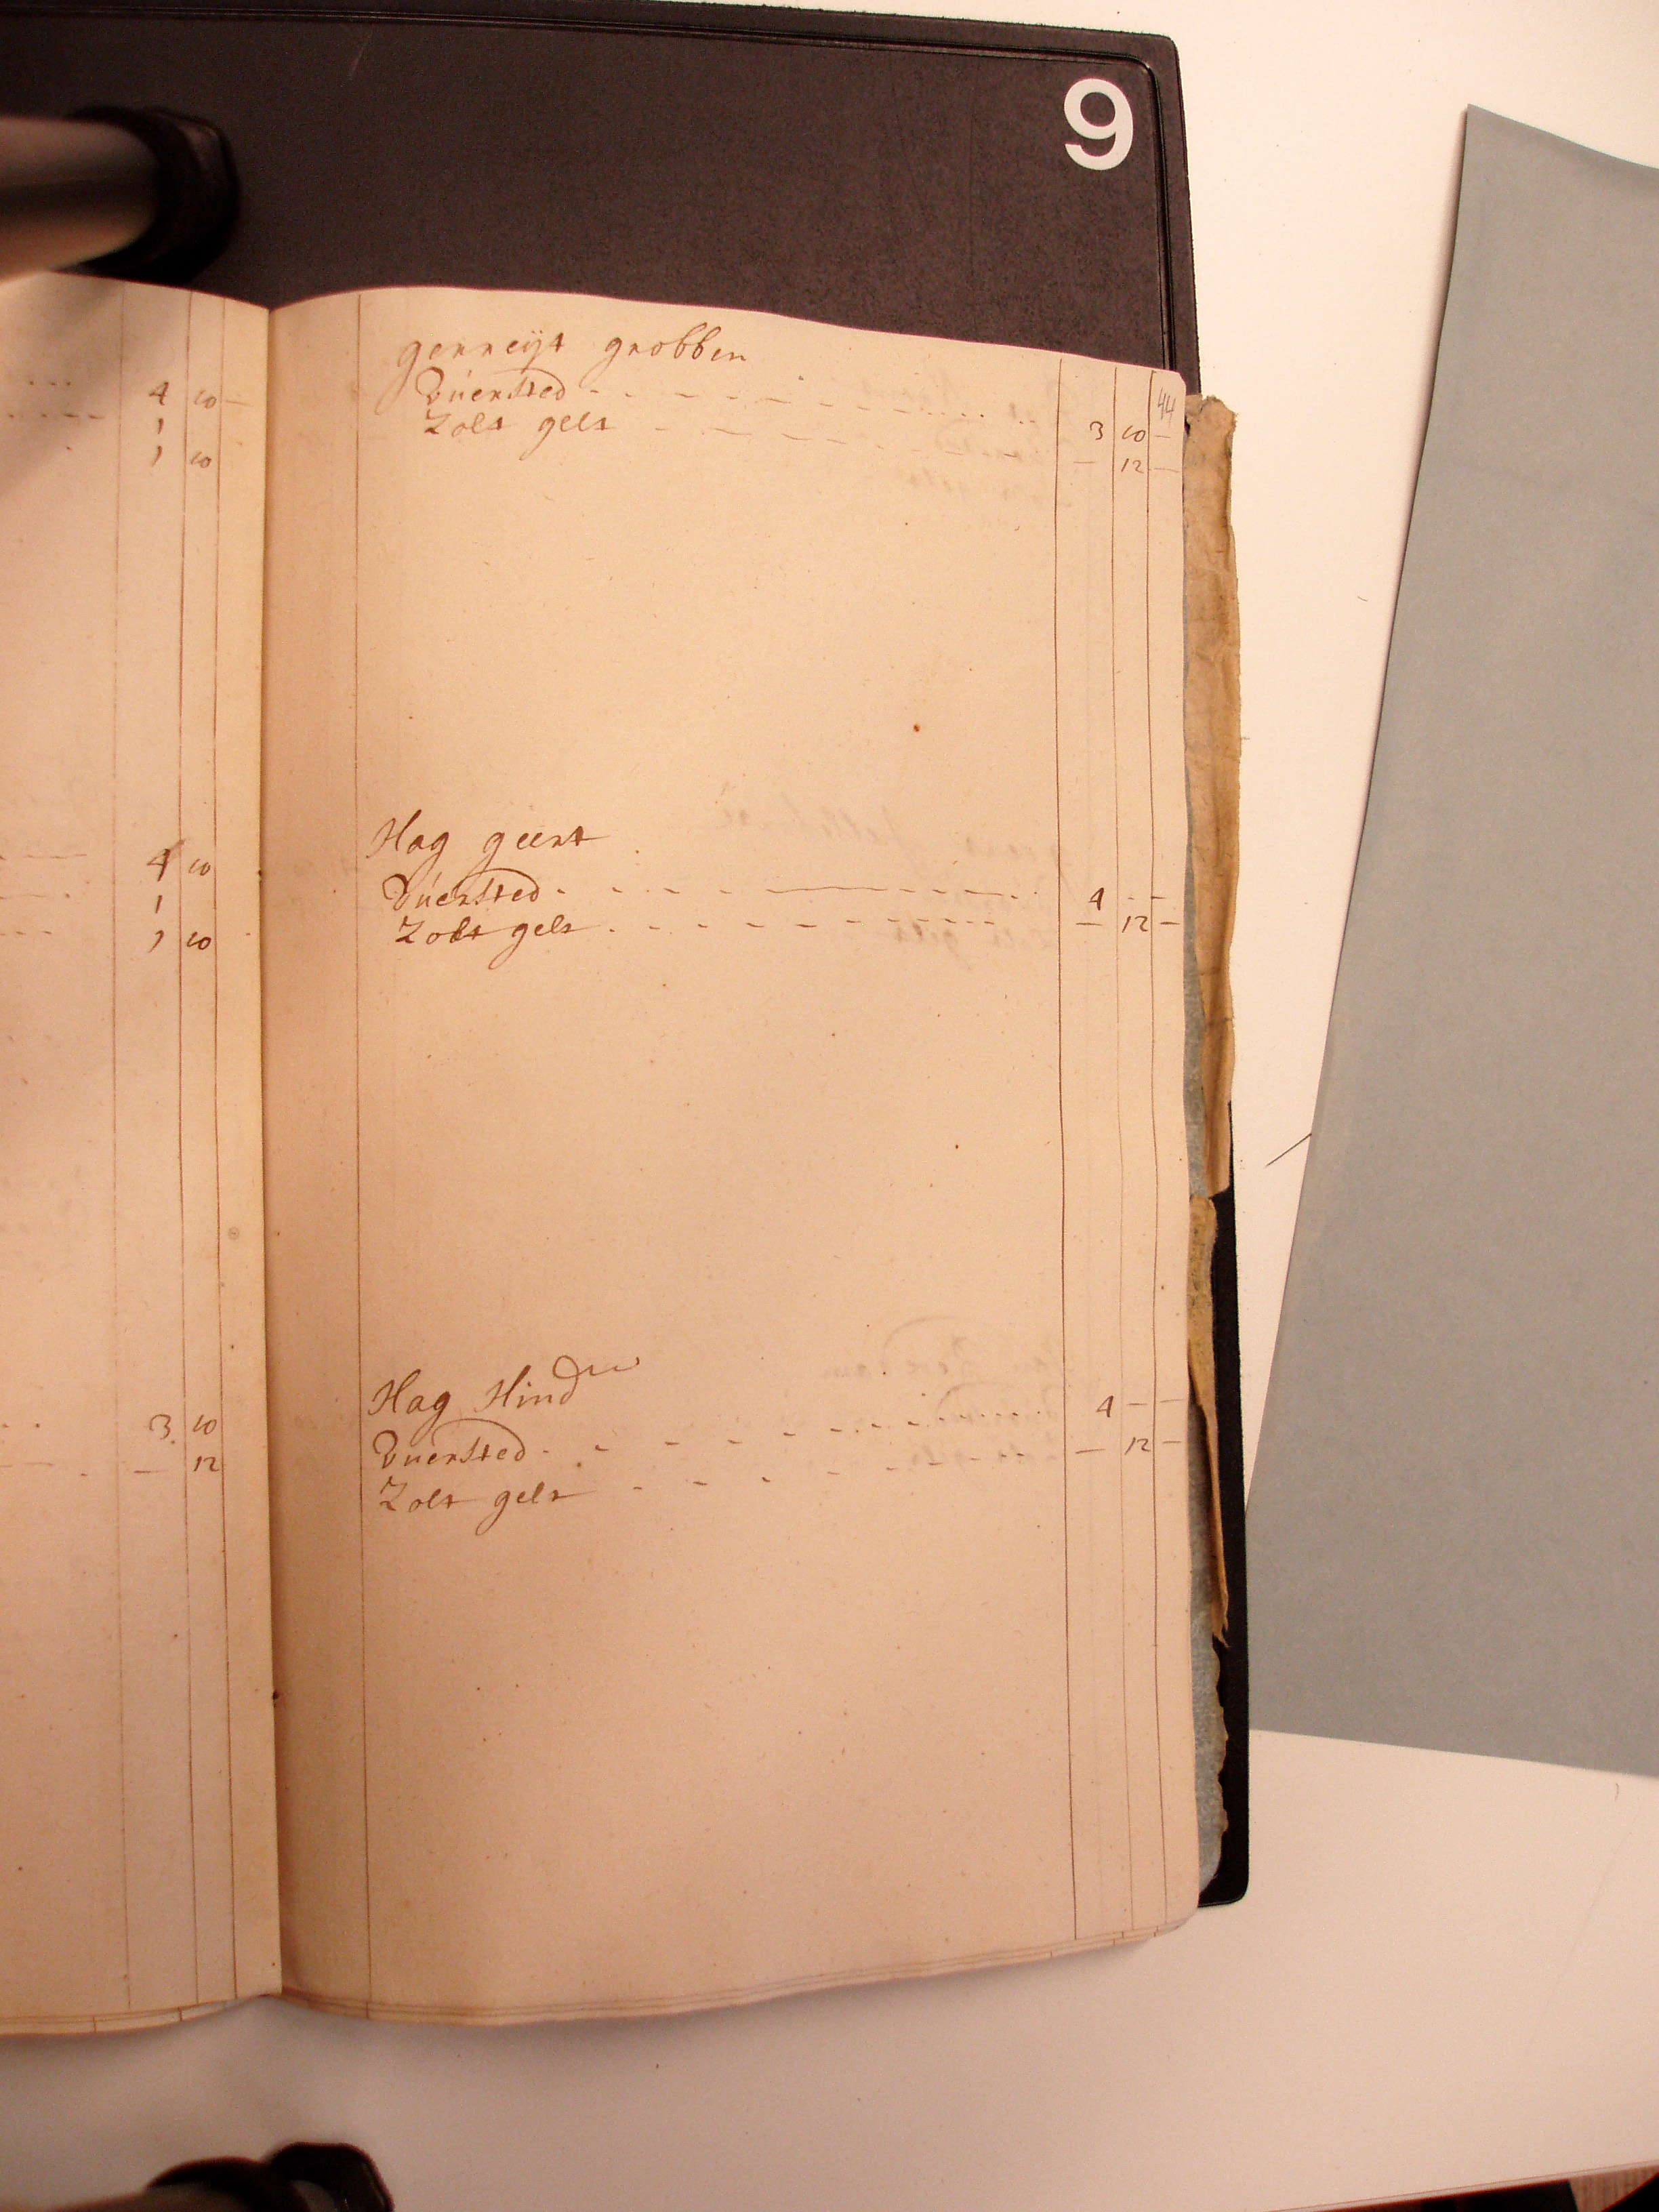 9
44
4 10 -
1
1 10
4 10
1
1 10
3 10
- 12
gerreijt grobben
Vúersted - - - - - - - 3 10 -
Zolt gelt - - - - - - - - 12 -
Hag geert
Vúersted - - - - - - - 4 - -
Zolt gelt - - - - - - - - 12 -
Hag Hindr
Vúersted - - - - - - - 4 - -
Zolt gelt - - - - - - - - 12 -